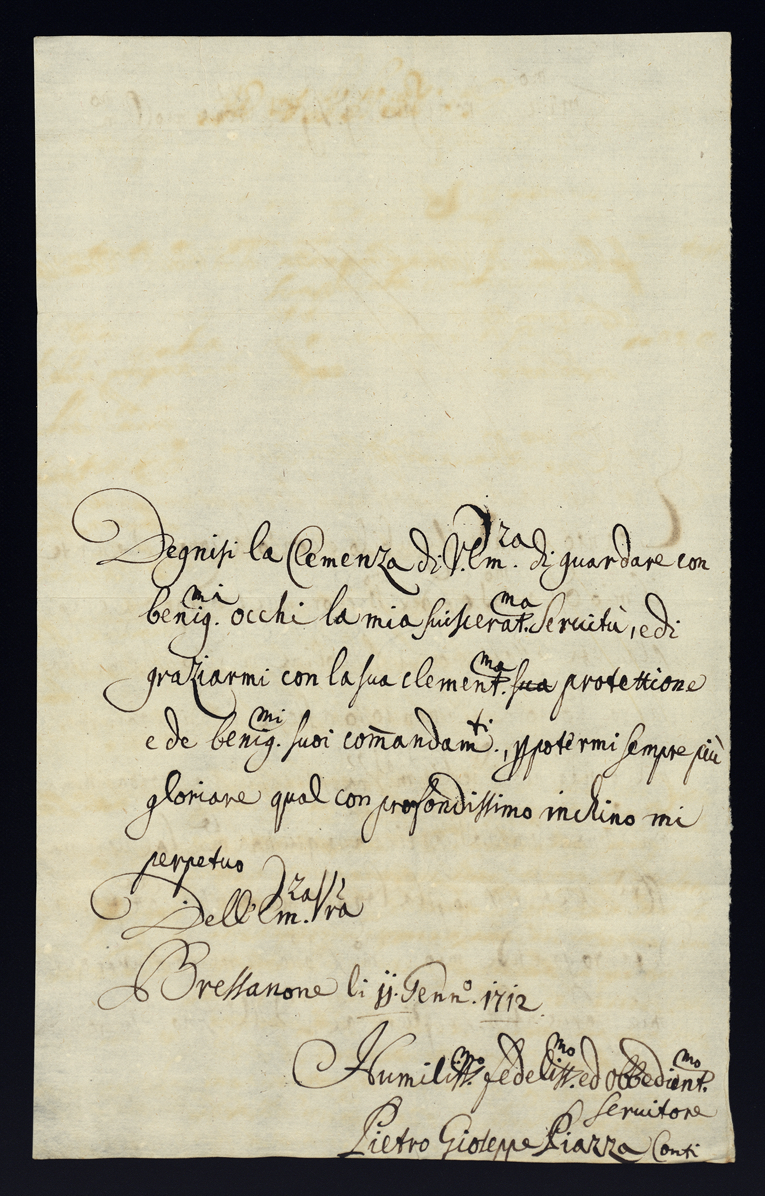 Degnisi la Clemenza di V. Em.za di guardare con
benig.mi occhi la mia suiscerat.ma Seruitù, e di
graziarmi con la sua clement.ma sua protettione
e de benig.mi suoi com̄andam.ti, p potermi sempre più
gloriare qual con profondissimo inchino mi
perpetuo
Dell'Em.za Vra
Bressanone li jj. Genn.o 1712
Humiliss.mo fedeliss.mo ed obbedient.mo
Seruitore
Pietro Gioseppe Piazza Conti